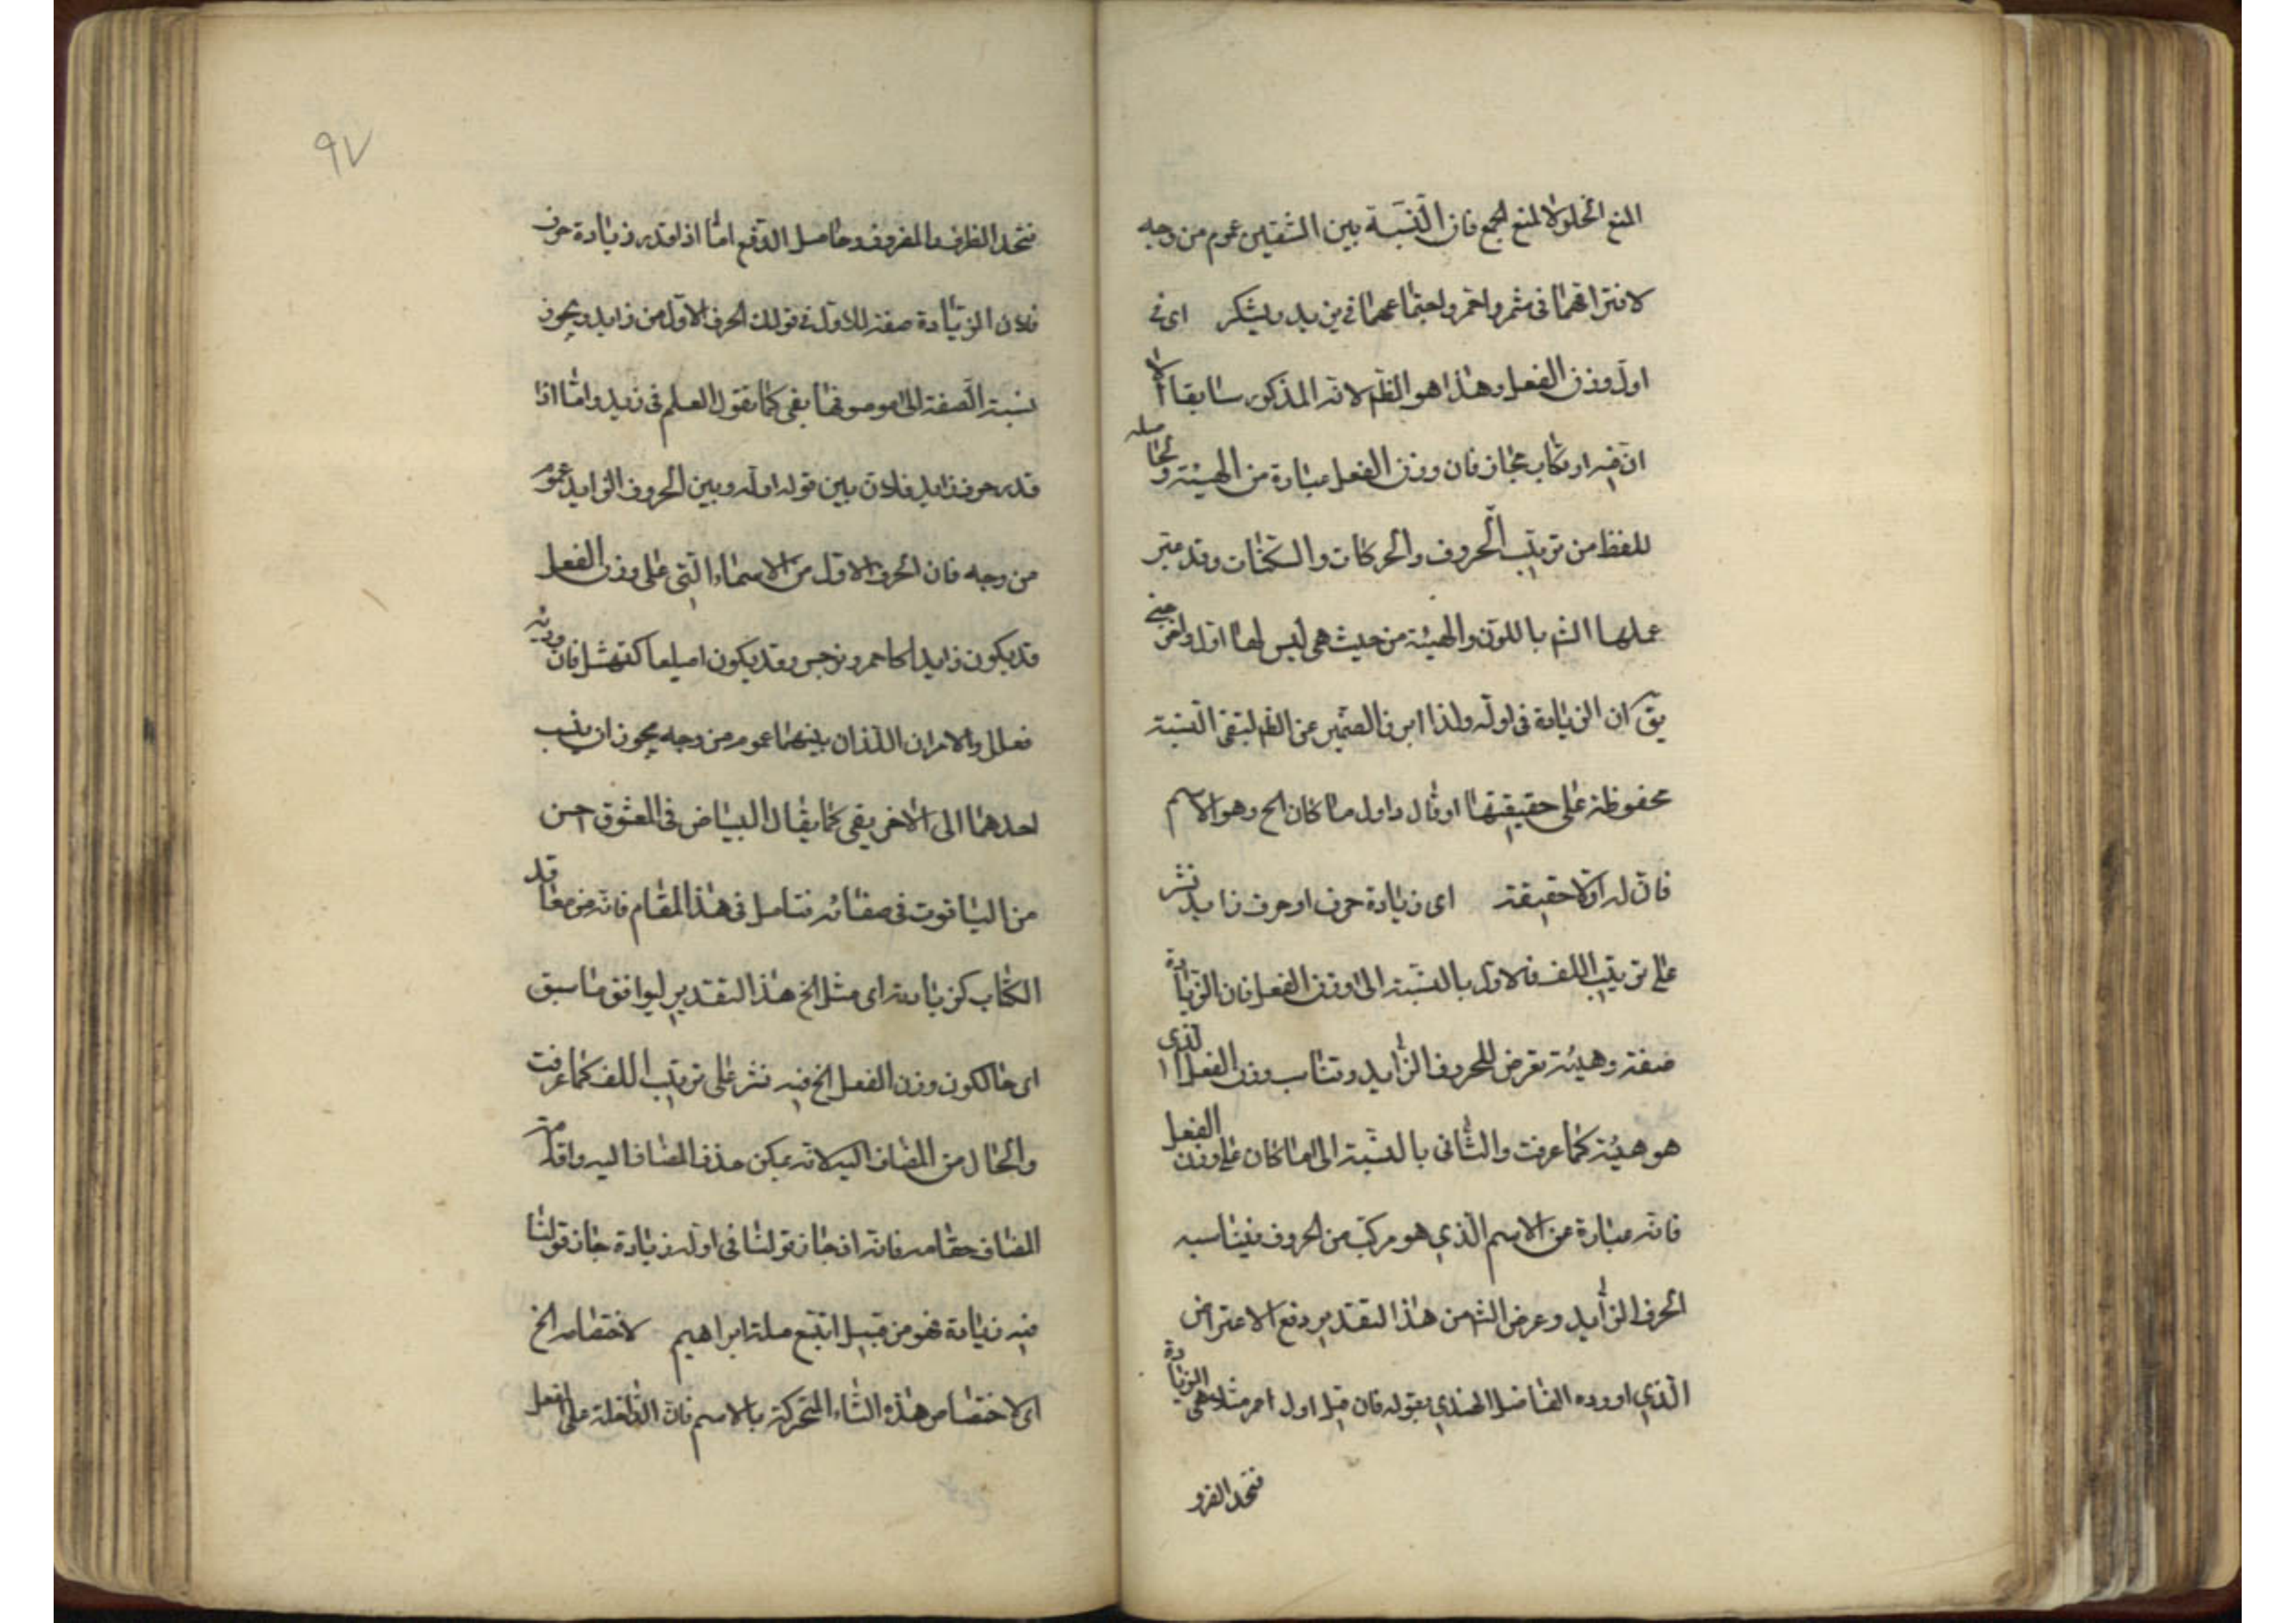 المنع الخلو لا لمنع الجمع فان النّسَبة بين الشقين عموم من وجه
لافتراقهما فى شمر واحمر واجتماعهما فى يزيد ويشكر اى فى
اول وزن الفعل وهذا هو الظم لانه المذكور سابقا الا
ان فيه ارتكاب مجاز فان وزن الفعل عبارة من الهيئة الحاصلة
للفظ من ترتيب الحروف والحركات والسكنات وقد عبر
عملها الشم باللون والهيئة من حيث هى ليس لها اول واخر حتى
يق ان الزيادة فى اوله ولذا ابرز الضمير عن الظم لتبقى النسبة
محفوظة على حقيقتها او قال واول ما كان الخ وهو الاسم
فان له اولا حقيقة اى زيادة حرف او حرف زايد نشر
على ترتيب اللف فالاول بالنسبة الى وزن الفعل فان الزيادة
صفة وهيئة تعرض للحروف الزايد وتناسب وزن الفعل الذى
هو هيئة كما عرفت والثانى بالنسبة الى ما كان على وزن الفعل
فانه عبارة عن الاسم الذي هو مركب من الحروف فيناسبه
الحرف الزايد وغرض الشم من هذا التقدير دفع الاعتراض
الذي اورده الفاضل الهندي بقوله فان قيل اول احمر مثلا هى الزيادة
فتحد الظرف
٩٧
فتحد الظرف والمظروف وحاصل الدفع اما اذا قدر زيادة حرف
فلان الزيادة صفة للاول فى قولك الحرف الاول من زايد ويجوز
نسبة الصفة الى موصوفها بفى كما تقول العلم فى زيد واما اذا
قدر حرف زايد فلان بين قوله اوله وبين الحروف الزايد عموم
من وجه فان الحرف الاول من الاسماء التى على وزن الفعل
قد يكون زايدا كاحمر ونرجس وقد يكون اصليا كنهشل فان وزنه
فعلل والامران اللذان بينهما عموم من وجه يجوز ان ينسب
احدهما الى الاخر بفى كما يقال البياض فى المعشوق احسن
من الياقوت فى صفائه فتامل فى هذا المقام فانه من مغالقد
الكتاب كزيادته اى مثل الخ هذا التقدير ليوافق ما سبق
اى حالكون وزن الفعل الخ فيه نشر على ترتيب اللف كما عرفت
والحال من المضاف اليه لانه يمكن حذف المضاف اليه واقامة
المضاف مقامه فانه اذا جاز قولنا فى اوله زيادة جاز قولنا
فيه زيادة فهو من قبيل اتبع ملة ابراهيم لاختصاصه الخ
اى لاختصاص هذه التاء المتحركة بالاسم فان الداخلة على الفعل